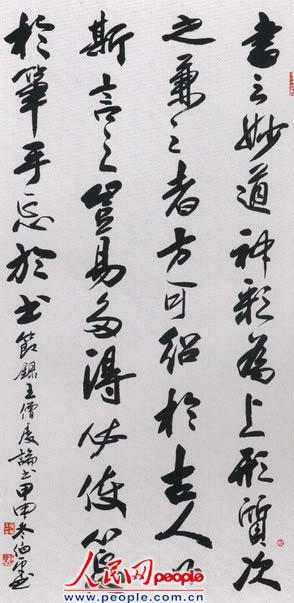 書之妙道神彩為上形質次
之兼之者方可紹於古人以
斯言之豈易多得必使心忘
於筆手忘於书
節錄王僧虔論书甲申冬伯
人民网people
www.people.com.cn